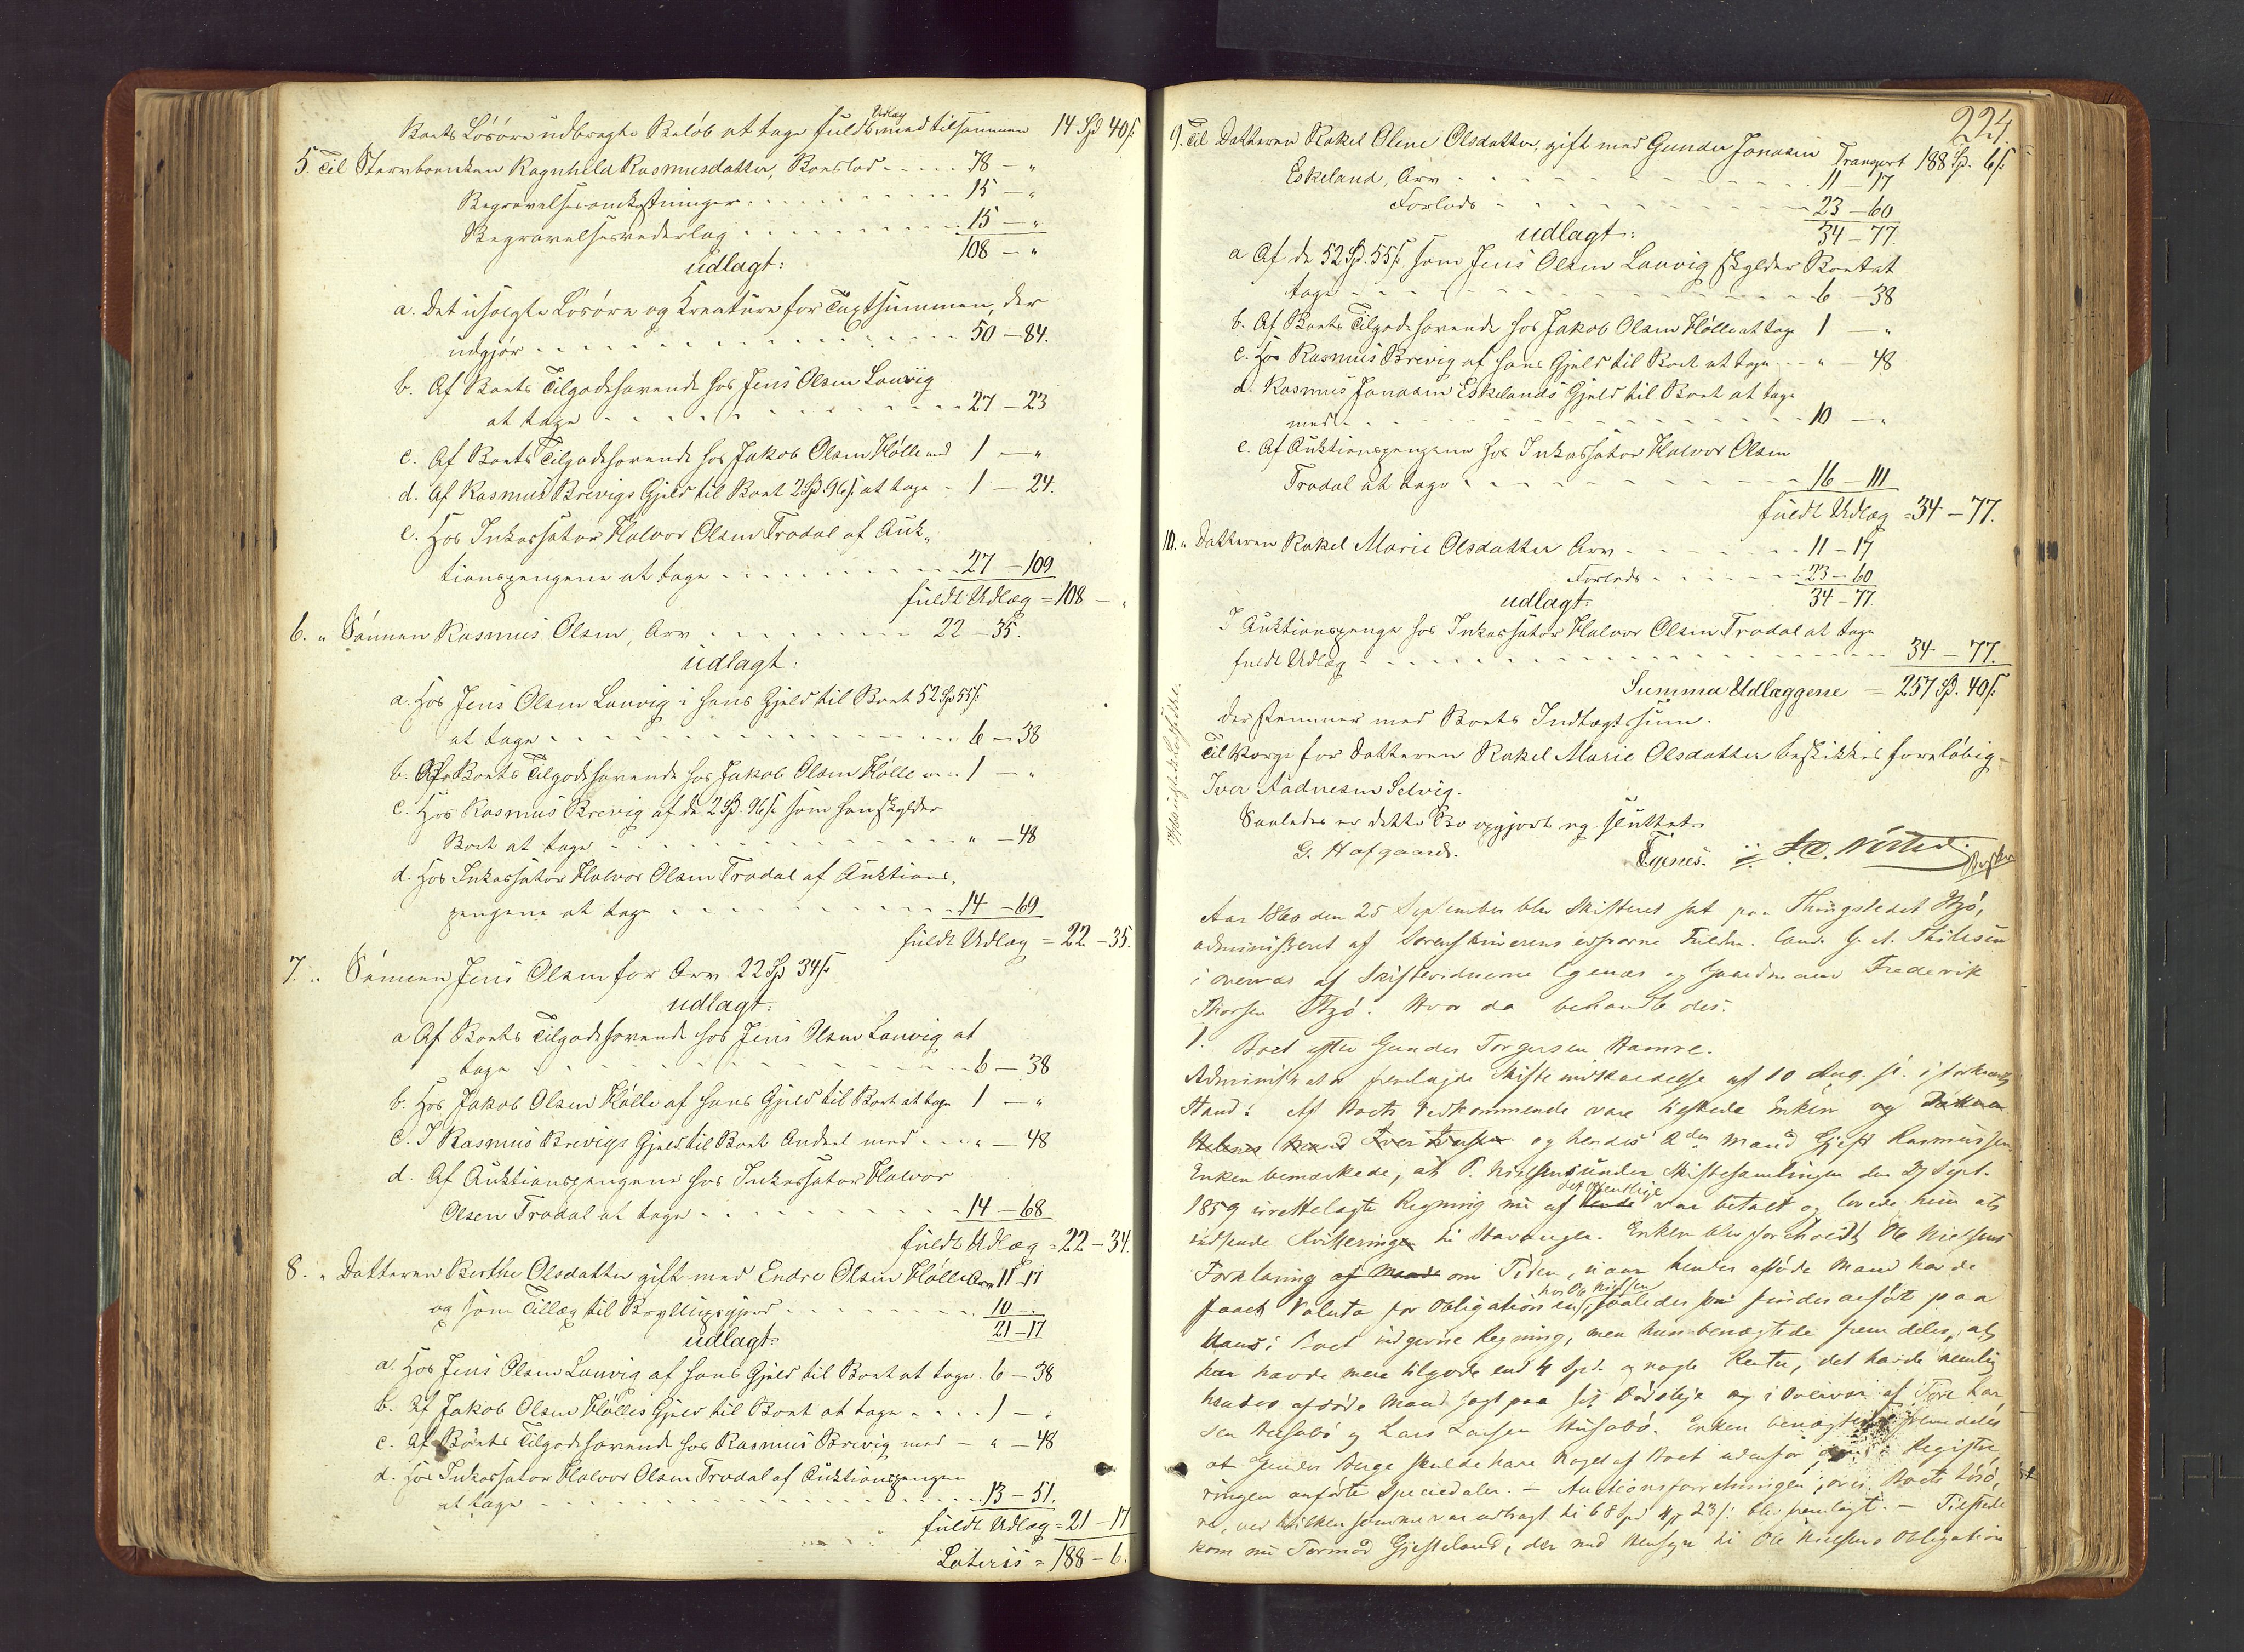 Boets Løsøre udbragte Beløb at tage fuldt Udlæg med tilsammen 14 Spd 40 ß
5. Til Stervboenken Ragnhild Rasmusdatter, Boeslod - - - - 78 - "
Begravelsesomkostninger - - - - 15 - "
Begravelsesvederlag - - - - 15 - "
108 - "
udlagt:
a. Det usolgte Løsøre og Kreature for Taxtsummen, der
udgjør - - - - 50 - 84.
b. Af Boets Tilgodehavende hos Jens Olsen Lauvig
at tage - - - - 27 - 23
c. Af Boets Tilgodehavende hos Jakob Olsen Hølle med 1 - "
d. Af Rasmus Brevigs Gjeld til Boet 2 Spd. 96 ß at tage - 1 - 24.
e. Hos Inkassator Halvor Olsen Tradal af Auk-
tionspengene at tage - - - - 27 - 109
fuldt Udlæg = 108 - "
6. " Sønnen Rasmus Olsen, Arv - - - - 22 - 35.
udlagt:
a. Hos Jens Olsen Lauvig i hans Gjeld til Boet 52 Spd 55 ß
at tage - - - - 6 - 38
b. Af Boets Tilgodehavende hos Jakob Olsen Hølle - - 1 - "
c. Hos Rasmus Brevig af de 2 Spd. 96 ß som han skylder
Boet at tage - - - - " - 48
d. Hos Inkassator Halvor Olsen Tradal af Auktions-
pengene at tage - - - - 14 - 69
fuldt Udlæg = 22 - 35.
7. " Sønnen Jens Olsen for Arv 22 Spd 34 ß
udlagt:
a Af Boets Tilgodehavende hos Jens Olsen Lauvig at
tage - - - - 6 - 38
b. Hos Jakob Olsen Hølle af hans Gjeld til Boet at tage 1 - "
c. I Rasmus Brevigs Gjeld til Boet Andeel med - - - " - 48
d. Af Auktionspengene hos Inkassator Halvor
Olsen Tradal at tage - - - - 14 - 68
fuldt Udlæg = 22 - 34.
8. " Datteren Berthe Olsdatter gift med Endre Olsen Hølle Arv 11 - 17
og som Tillæg til Bryllupsgjerd - - - - 10 - "
21 - 17
udlagt:
a. Hos Jens Olsen Lauvig af hans Gjeld til Boet at tage. 6 - 38
b. Af Jakob Olsen Hølles Gjeld til Boet at tage - - - - 1 - "
c. Af Boets Tilgodehavende hos Rasmus Brevig med - " - 48
d. Hos Inkassator Halvor Olsen Tradal af Auktionspengene
at tage - - - - 13 - 51.
fuldt Udlæg = 21 - 17
Lateris = 188 - 6.
224.
Transport 188 Spd. 6 ß
9. Til Datteren Rakel Oline Olsdatter, gift med Gunder Jonasen
Eskeland, Arv - - - - 11 - 17
Forlods - - - - 23 - 60
34 - 77.
udlagt:
a Af de 52 Spd. 55 ß som Jens Olsen Lauvig skylder Boet at
tage - - - - 6 - 38
b. Af Boets Tilgodehavende hos Jakob Olsen Hølle at tage 1 - "
c. Hos Rasmus Brevig af hans Gjeld til Boet at tage - - " - 48
d. Rasmus Jonasen Eskelands Gjeld til Boet at tage
med - - - - 10 - "
e. Af Auktionspengene hos Inkassator Halvor Olsen
Tradal at tage - - - - 16 - 111
fuldt Udlæg = 34 - 77.
10. " Datteren Rakel Marie Olsdatter Arv - - - - 11 - 17
Forlods - - - - 23 - 60
34 - 77
udlagt:
I Auktionspenge hos Inkassator Halvor Olsen Tradal at tage
fuldt Udlæg - - - - 34 - 77.
Summa Udlæggene = 257 Spd. 40 ß
der stemmer med Boets Indtægtssum.
Til Værge for Datteren Rakel Marie Olsdatter beskikkes foreløbig
Iver Aadnesen Selvig.
Saaledes er dette Bo opgjort og sluttet.
G. Hafgaard.
Aar 1860 den 25 September blev Skifteret sat paa Thingstedet Hjø,
administreret af Sorenskriverens Fuldm. Cand.
i overvær af Skiftevidnerne Egenæs og Gaardmand Frederik
Thorsen Hjø. Hvor da behandledes:
1. Boet efter Gunder Torgersen Hamre.
Administrator fremlagde Skifteindkaldelse af 10 Aug. i forkyndt
Stand: Af Boets Vedkommende vare tilstede Enken og
Helenes Mand og hendes 2den Mand Gjest Rasmussen.
Enken bemærkede, at O. Nielsens under Skiftesamlingen den 27 Sept.
1859 irettelagte Regning nu af det offentlige var betalt og lovede hun at
indsende Kvittering til Stavanger. Enken blev foreholdt Ole Nielsens
Forklaring om Tiden, naar hendes afdøde Mand havde
faaet Valuta for Obligationen hos Ole Nielsen, saaledes som findes anført paa
Hans i Boet indgivne Regning, men hun benægtede fremdeles, at
han havde mere tilgode end 4 Spd. og nogle Renter, det havde nemlig
hendes afdøde Mand sagt paa sit Dødsleje og i Overvær af Tore Lar-
sen Husabø og Lars Larsen Husabø. Enken benægtede fremdeles
at Gunder Berge skulde have Noget af Boet udenfor Registre-
ringen anførte Speciedaler. - Auctionsforretningen over Boets Løsø-
re, ved hvilken samme var udbragt til 68 Spd 4 ort 23 ß blev fremlagt. - Tilstede
kom nu Tormod Gjesteland, der med Hensyn til Ole Nielsens Obligation